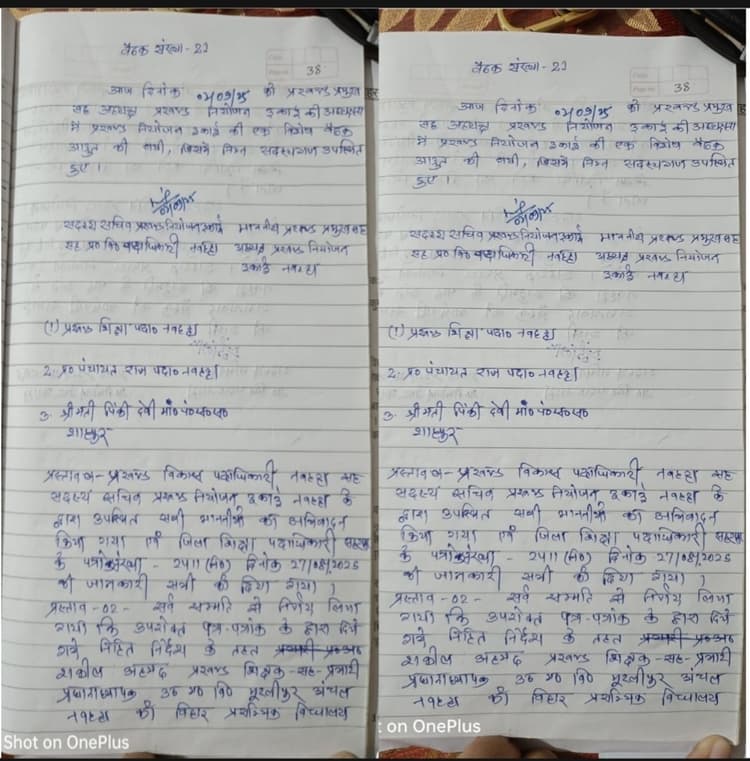 बैठक संख्या - 22
38
आज दिनांक 02/09/25 को प्रखण्ड प्रमुख
सह अध्यक्ष प्रखण्ड नियोजन इकाई की अध्यक्षता
में प्रखण्ड नियोजन इकाई की एक विशेष बैठक
आहुत की गयी, जिसमें निम्न सदस्यगण उपस्थित
हुए ।
सदस्य सचिव प्रखण्ड नियोजन इकाई
सह प्र० वि० पदाधिकारी नवहट्टा
माननीय प्रखण्ड प्रमुख सह
अध्यक्ष प्रखण्ड नियोजन
इकाई नवहट्टा
(1) प्रखण्ड शिक्षा पदा० नवहट्टा
2. प्र० पंचायत राज पदा० नवहट्टा
3. श्रीमती पिंकी देवी मा० पं०स०स०
शाहपुर
प्रस्ताव 01 - प्रखण्ड विकास पदाधिकारी, नवहट्टा सह
सदस्य सचिव प्रखण्ड नियोजन इकाई नवहट्टा के
द्वारा उपस्थित सभी माननीयों का अभिवादन
किया गया एवं जिला शिक्षा पदाधिकारी सहरसा
के पत्रांक संख्या - 2411 (मि०) दिनांक 27/08/2025
की जानकारी सभी को दिया गया ।
प्रस्ताव - 02 - सर्व सम्मति से निर्णय लिया
गया कि उपरोक्त पत्र-पत्रांक के द्वारा दिये
गये निहित निर्देश के तहत
शकील अहमद प्रखण्ड शिक्षक - सह - प्रभारी
प्रधानाध्यापक उ० म० वि० मुरलीपुर अंचल
नवहट्टा को बिहार प्रारम्भिक विद्यालय
Shot on OnePlus
बैठक संख्या - 22
38
आज दिनांक 02/09/25 को प्रखण्ड प्रमुख
सह अध्यक्ष प्रखण्ड नियोजन इकाई की अध्यक्षता
में प्रखण्ड नियोजन इकाई की एक विशेष बैठक
आहुत की गयी, जिसमें निम्न सदस्यगण उपस्थित
हुए ।
सदस्य सचिव प्रखण्ड नियोजन इकाई
सह प्र० वि० पदाधिकारी नवहट्टा
माननीय प्रखण्ड प्रमुख सह
अध्यक्ष प्रखण्ड नियोजन
इकाई नवहट्टा
(1) प्रखण्ड शिक्षा पदा० नवहट्टा
2. प्र० पंचायत राज पदा० नवहट्टा
3. श्रीमती पिंकी देवी मा० पं०स०स०
शाहपुर
प्रस्ताव 01 - प्रखण्ड विकास पदाधिकारी, नवहट्टा सह
सदस्य सचिव प्रखण्ड नियोजन इकाई नवहट्टा के
द्वारा उपस्थित सभी माननीयों का अभिवादन
किया गया एवं जिला शिक्षा पदाधिकारी सहरसा
के पत्रांक संख्या - 2411 (मि०) दिनांक 27/08/2025
की जानकारी सभी को दिया गया ।
प्रस्ताव - 02 - सर्व सम्मति से निर्णय लिया
गया कि उपरोक्त पत्र-पत्रांक के द्वारा दिये
गये निहित निर्देश के तहत
शकील अहमद प्रखण्ड शिक्षक - सह - प्रभारी
प्रधानाध्यापक उ० म० वि० मुरलीपुर अंचल
नवहट्टा को बिहार प्रारम्भिक विद्यालय
t on OnePlus